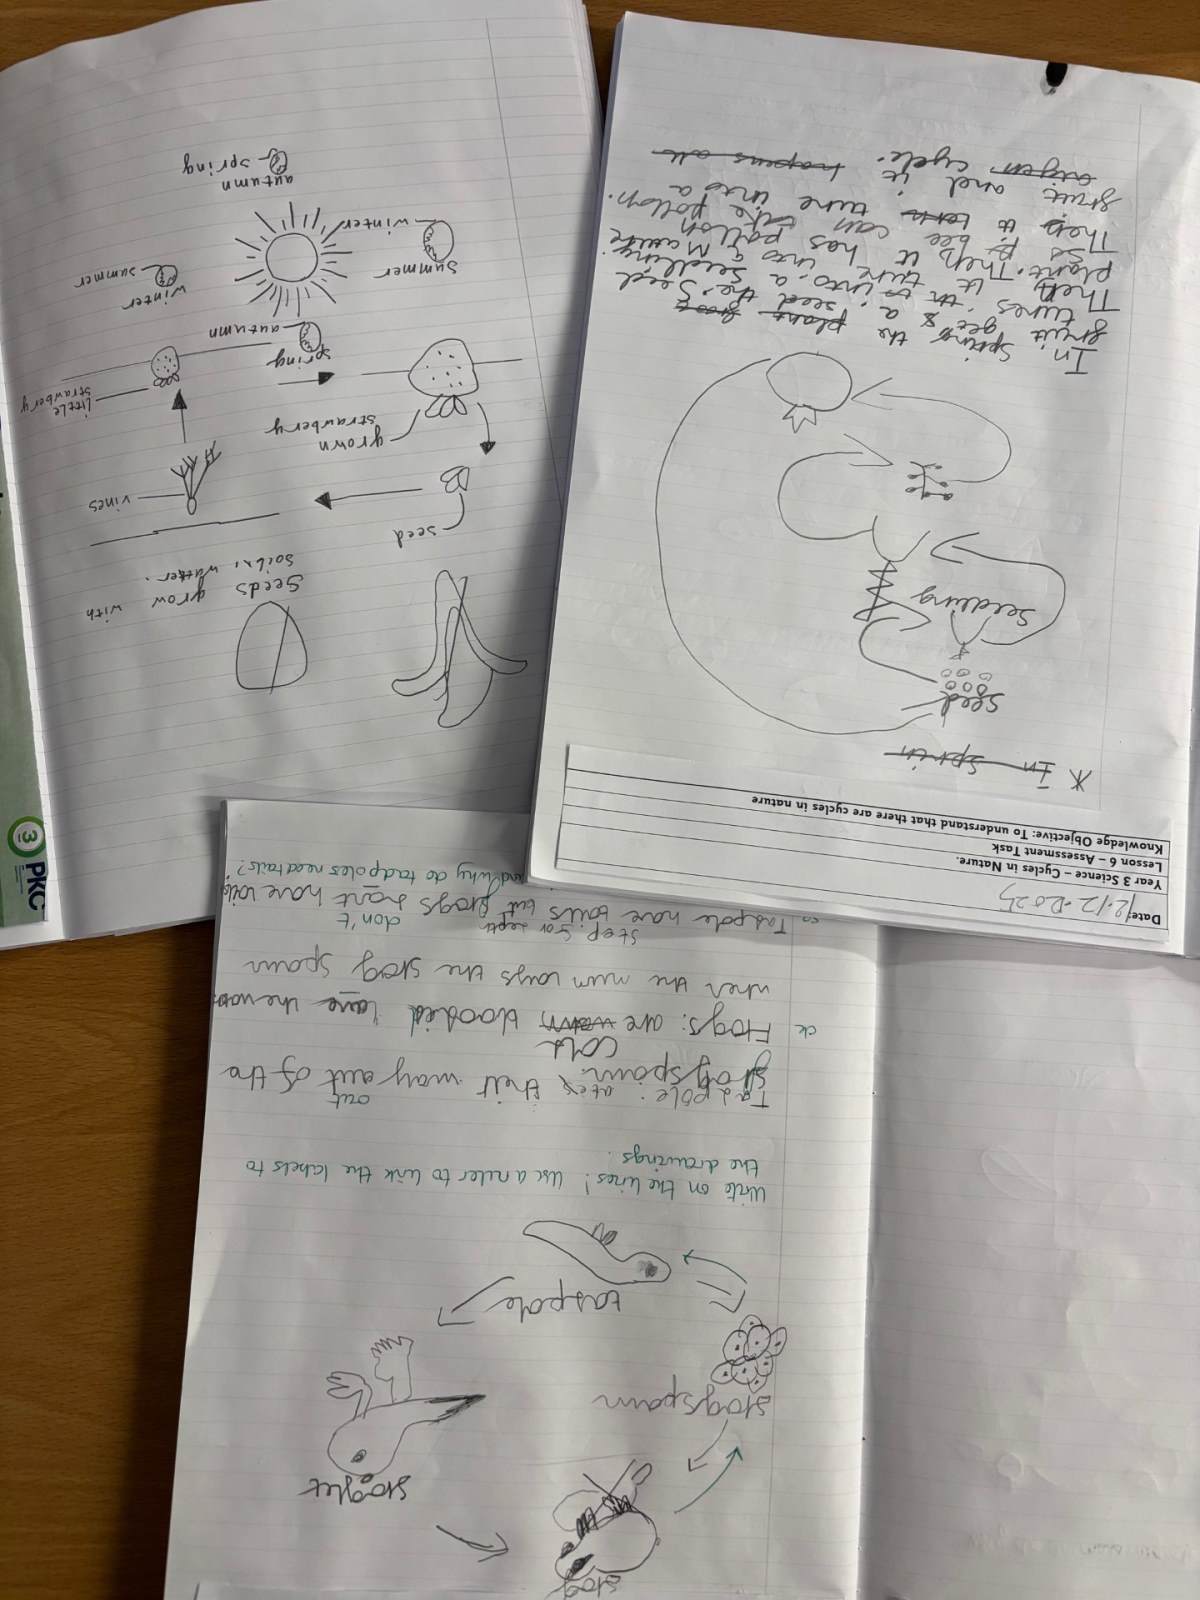 Date: 12.12.2025
Year 3 Science – Cycles in Nature.
Lesson 6 – Assessment Task
Knowledge Objective: To understand that there are cycles in nature
* In Sprein
Seed
Seedling
In spring the plant seed the Seed
gruit gets a
tures in to into a seedling.
Then it ture into a Mauture
plant. Then it has pollon
So bee can take pollon.
Then to turn ture into a
gruit and it
cycle. hapens
seed
vines
grown
strawberry
Little
strawberry
Seeds grow with
soil, water.
spring
autumn
winter
summer
summer
winter
autumn
spring
PKC
3
frog
froglet
frogspawn
taspole
Write on the lines! Use a ruler to link the labels to
the drawings.
Tadpole: ates their way out of the
out
frogspawn.
cold
Frogs: are warm blooded
when the mum lays the frog spawn
don't
Tadpole have tails but frogs have
and why do tadpoles need tails?